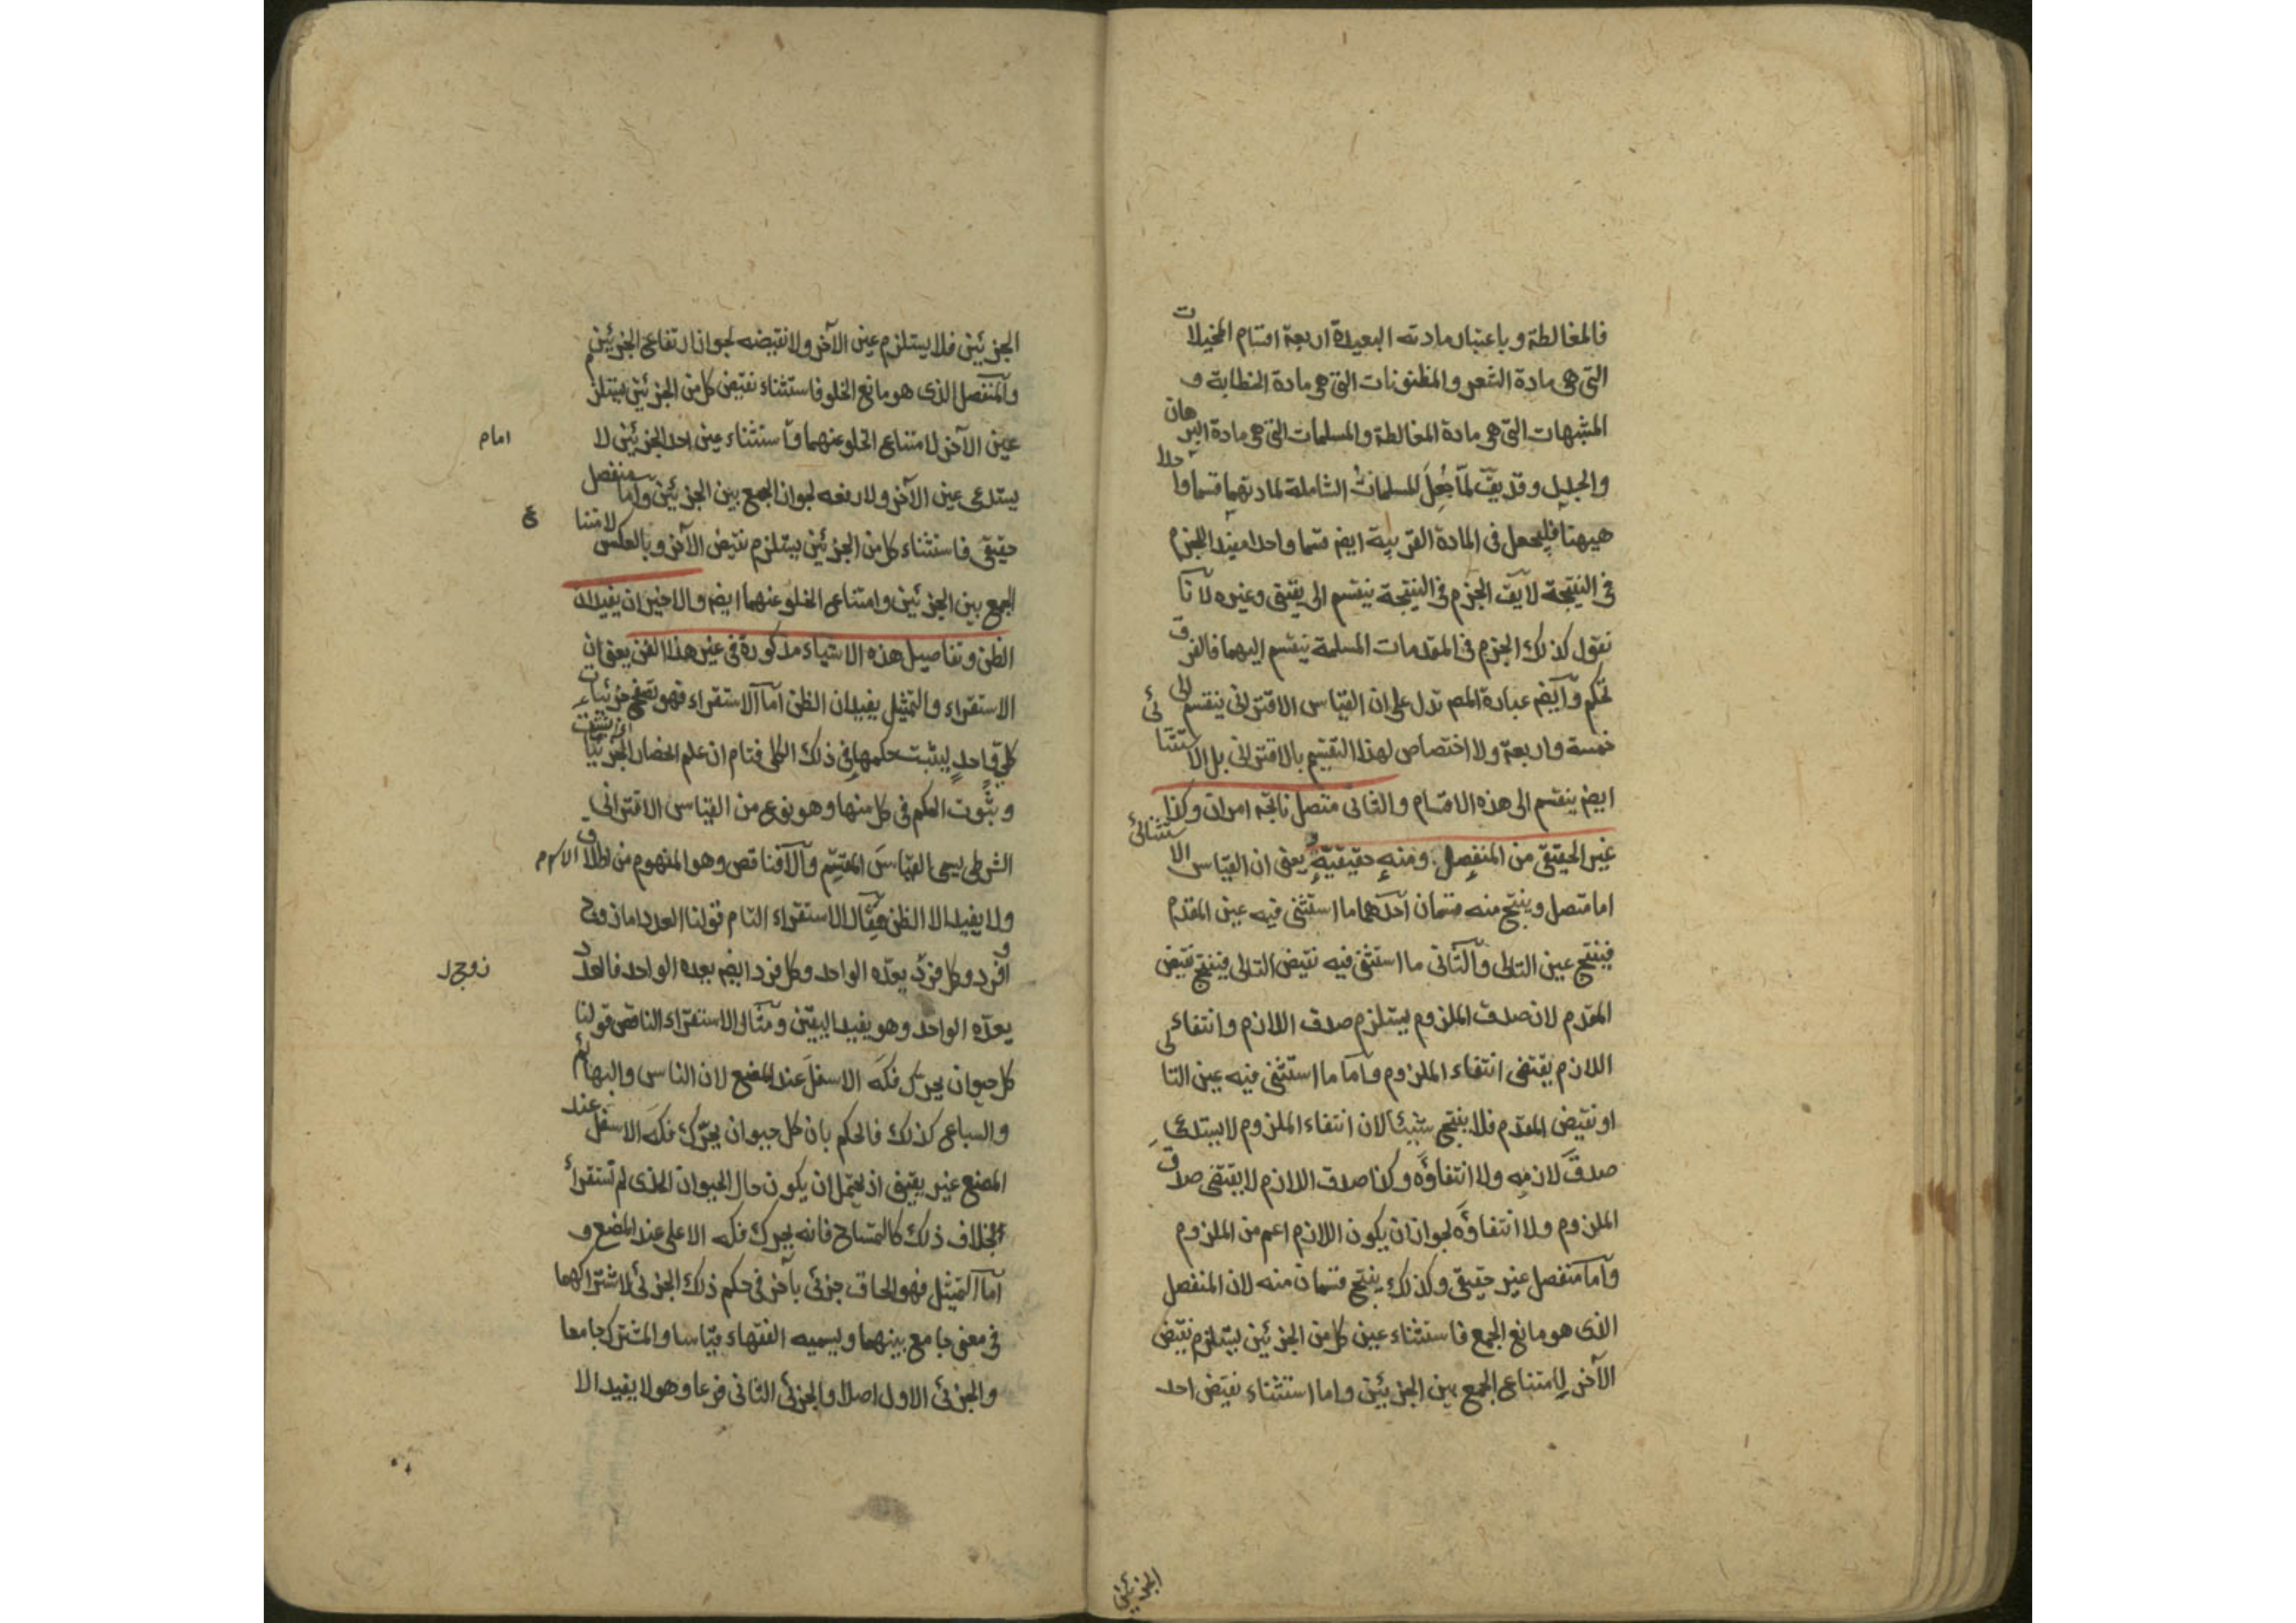 فالمغالطة وباعتبار مادته البعيدة اربعة اقسام المخيلات
التى هى مادة الشعر والمظنونات التى هى مادة الخطابة و
المشبهات التى هى مادة المغالطة والمسلمات التى هى مادة البرهان
والجدل وقد يقّ لمّا جُعِلَ للمسلمات الشاملة لمادتهما قسما واحدا
هيهنا فليجعل فى المادة القريبة ايضم قسما واحدا مفيد الجزم
فى النتيجة لا يقّ الجزم فى النتيجة ينقسم الى يقينى وغيره لانّا
نقول كذلك الجزم فى المقدمات المسلمة ينقسم اليهما فالفرق
تحكم وايضم عبارة المصم تدل على ان القياس الاقترانى ينقسم الى
خمسة واربعة ولا اختصاص لهذا التقسيم بالاقترانى بل الاستثنائى
ايضم ينقسم الى هذه الاقسام والثانى متصل ناتجه امران وكذا
غير الحقيقى من المنفصل ومنه حقيقيّة يعنى ان القياس الاستثنائى
اما متصل وينتج منه قسمان احدهما ما استثنى فيه عين المقدم
فينتج عين التالى والثانى ما استثنى فيه نقيض التالى فينتج نقيض
المقدم لان صدق الملزوم يستلزم صدق اللازم وانتفاء
اللازم يقتضى انتفاء الملزوم واما ما استثنى فيه عين التالى
او نقيض المقدم فلا ينتج شيئا لان انتفاء الملزوم لا يستدعى
صدق لازمه ولا انتفاؤه وكذا صدق اللازم لا يقتضى صدق
الملزوم ولا انتفاؤه لجواز ان يكون اللازم اعم من الملزوم
واما منفصل غير حقيقى وكذلك ينتج قسمان منه لان المنفصل
الذى هو مانع الجمع فاستثناء عين كل من الجزئين يستلزم نقيض
الآخر لامتناع الجمع بين الجزئين واما استثناء نقيض احد
الجزئين
الجزئين فلا يستلزم عين الآخر ولا نقيضه لجواز ارتفاع الجزئين
والمنفصل الذى هو مانع الخلو فاستثناء نقيض كل من الجزئين يستلزم
عين الآخر لامتناع الخلو عنهما واستثناء عين احد الجزئين لا
امام
يستدعى عين الآخر ولا رفعه لجواز الجمع بين الجزئين واما منفصل
حقيقى فاستثناء كل من الجزئين يستلزم نقيض الآخر وبالعكس لامتنا
ع
الجمع بين الجزئين وامتناع الخلو عنهما ايضم والاخيران يفيدان
الظن وتفاصيل هذه الاشياء مذكورة فى غير هذا الفن يعنى ان
الاستقراء والتمثيل يفيدان الظن امّا الاستقراء فهو تصفح جزئيات
كلى واحد ليثبت حكمها فى ذلك الكلى فتام ان علم انحصار الجزئيات
وثبوت الحكم فى كل منها وهو نوع من القياس الاقترانى
الشرطى يسمى القياس المقسم والا فناقص وهو المفهوم من اطلاق الاسم
ولا يفيد الا الظن مثال الاستقراء التام قولنا العدد اما زوج
او فرد وكل فرد يعدّه الواحد وكل فرد ايضم يعده الواحد فالعدد
زوج
يعدّه الواحد وهو يفيد اليقين ومثال الاستقراء الناقص قولنا
كل حيوان يحرك فكه الاسفل عند المضغ لان الناس والبهائم
والسباع كذلك فالحكم بان كل حيوان يحرّك فكه الاسفل عند
المضغ غير يقينى اذ يحتمل ان يكون حال الحيوان الذى لم تستقرأ
بخلاف ذلك كالتمساح فانه يحرك فكه الاعلى عند المضغ و
امّا التمثيل فهو الحاق جزئى بآخر فى حكم ذلك الجزئى لاشتراكهما
فى معنى جامع بينهما ويسميه الفقهاء قياسا والمشترك جامعا
والجزئى الاول اصلا والجزئى الثانى فرعا وهو لا يفيد الا